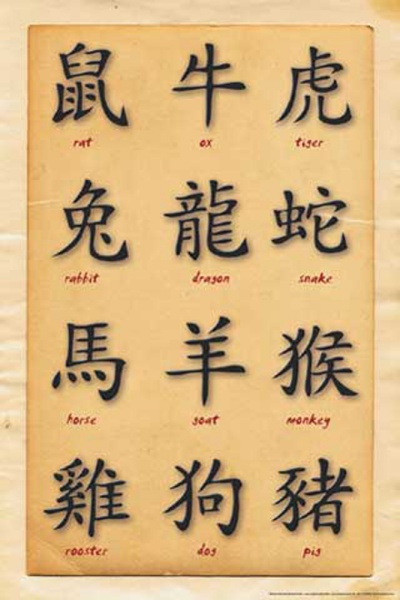 鼠 牛 虎
rat ox tiger
兔 龍 蛇
rabbit dragon snake
馬 羊 猴
horse goat monkey
雞 狗 豬
rooster dog pig